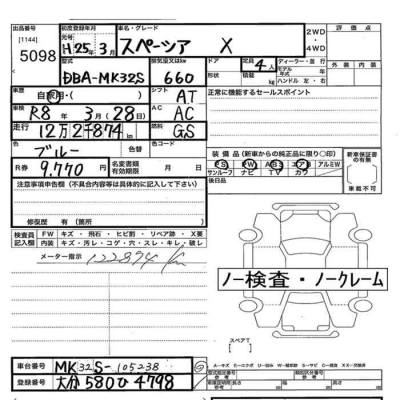 出品番号
[1144]
5098
初度登録年月
H25年3月
車名・グレード
スペーシア X
2WD
・
4WD
評価点
外装 内装
型式
DBA-MK32S
排気量又はkW
660
ドア
形状
定員
4人
積載量
ディーラー・並行
モデル年式
ハンドル 左・右
車歴
自家用・( )
シフト
AT
正常に機能するセールスポイント
車検
R8年3月(28日)
AC
AC
走行
12万2千874km
燃料
GS
色
ブルー
色替
色コード
R券
9,770円
名変書類有効期限
装備品(新車からの純正品に限り○印)
PS PW ABS エアB アルミW
サンルーフ ナビ TV カワ
後日品
新車保証書の有無
車載不可
注意事項申告欄(不具合内容等は具体的に記入して下さい)
修復歴 有(箇所)
検査員記入欄
FW キズ・飛石・ヒビ割・リペア跡・X要
内装 キズ・汚レ・コゲ・穴・スレ・キレ・破レ
メーター指示 122874 km
ノー検査・ノークレーム
スペアT
車台番号
MK32S-105238
登録番号
大分580ひ4798
A-キズ E-エクボ U-凹み W-補修跡 S-サビ C-腐食 XX-交換済